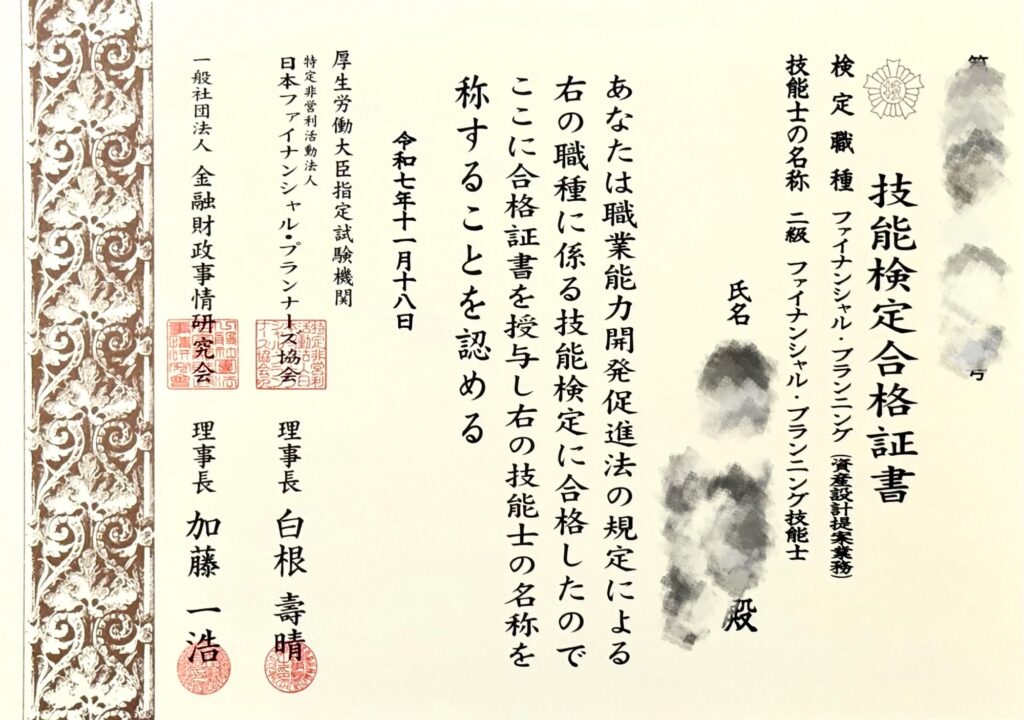 第
号
技能検定合格証書
検定職種 ファイナンシャル・プランニング（資産設計提案業務）
技能士の名称 二級 ファイナンシャル・プランニング技能士
氏名
殿
あなたは職業能力開発促進法の規定による
右の職種に係る技能検定に合格したので
ここに合格証書を授与し右の技能士の名称を
称することを認める
令和七年十一月十八日
厚生労働大臣指定試験機関
特定非営利活動法人
日本ファイナンシャル・プランナーズ協会 理事長 白根壽晴
一般社団法人 金融財政事情研究会 理事長 加藤一浩